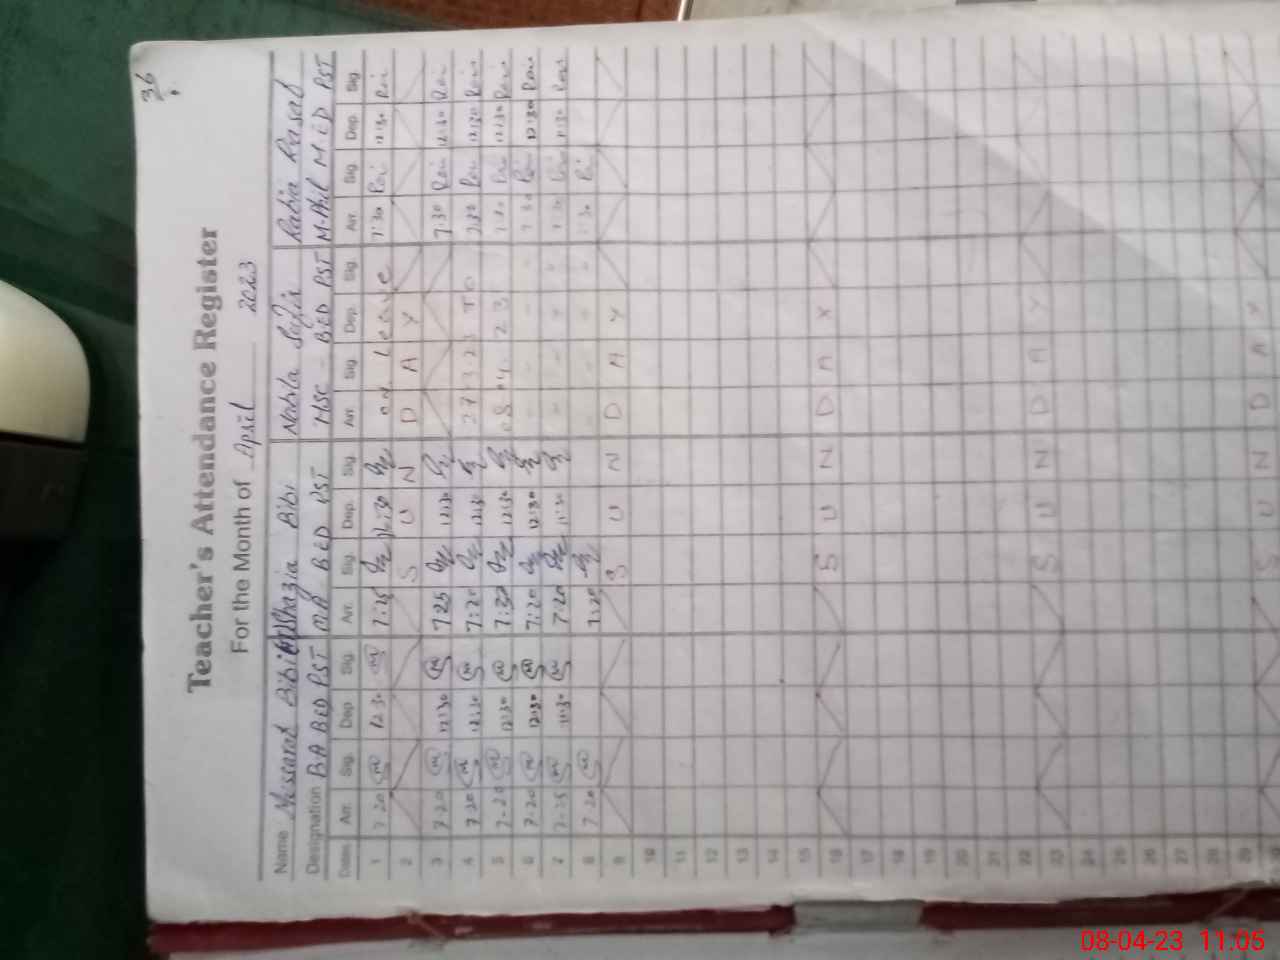 36
Teacher's Attendance Register
For the Month of April 2023
Name Bibi Shazia Bibi Nabila Rabia
Designation BA BED PST MA BED PST MSC - BED PST M.Phil M.iD PST
Dates Arr. Sig. Dep. Sig. Arr. Sig. Dep. Sig. Arr. Sig. Dep. Sig. Arr. Sig. Dep. Sig.
1 7:20 12:30 7:25 12:30 on leave 7:30 Roi 12:30 Roi
2 S U N D A Y
3 7:20 12:30 7:25 12:30 7:30 Roi 12:30 Roi
4 7:20 12:30 7:20 12:30 27-3-23 To 7:30 Roi 12:30 Roi
5 7:20 12:30 7:20 12:30 08-04-23 7:30 Roi 12:30 Roi
6 7:20 12:30 7:20 12:30 7:30 Roi 12:30 Roi
7 7:25 11:30 7:20 11:30 7:30 Roi 11:30 Roi
8 7:20 7:20 7:30 Roi
9 S U N D A Y
10
11
12
13
14
15
16 S U N D A Y
17
18
19
20
21
22
23 S U N D A Y
24
25
26
27
28
29
S U N D A Y
08-04-23 11:05